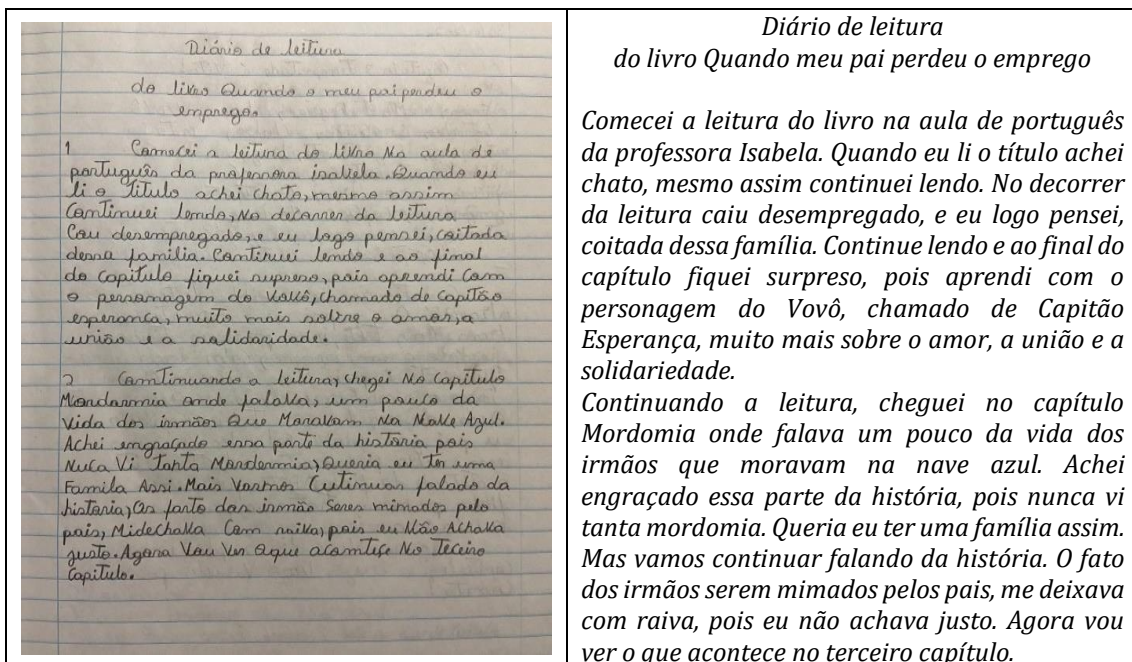 Diário de leitura
do livro Quando o meu pai perdeu o
emprego.
1 Comecei a leitura do livro Na aula de
português da professora isabela. Quando eu
li o Titulo achei chato, mesmo assim
Continuei lendo, No decorrer da leitura
Cau desempregado, e eu logo pensei, coitada
dessa familia. Continuei lendo e ao final
do capitulo fiquei supreso, pois aprendi Com
o personagem do Vovô, chamado de Capitão
esperanca, muito mais sobre o amor, a
união e a salidaridade.
2 Comtinuando a leitura, chegei No Capitulo
onde falava, um pouco da
Vida dos irmãos Que Moravam Na Nave Azul.
Achei engraçado essa parte da historia pois
Nuca Vi Tanta Mordermia, Queria eu Ter uma
Familia Assi. Mais Vasmos Cutinuar falado da
historia, Os fato dos irmão Seres mimados pelo
pais, Midechava Com raiva, pois eu Não Achava
justo. Agora Vou Ver Oque acomtece No Teceiro
Capitulo.
Diário de leitura
do livro Quando meu pai perdeu o emprego
Comecei a leitura do livro na aula de português
da professora Isabela. Quando eu li o título achei
chato, mesmo assim continuei lendo. No decorrer
da leitura caiu desempregado, e eu logo pensei,
coitada dessa família. Continue lendo e ao final do
capítulo fiquei surpreso, pois aprendi com o
personagem do Vovô, chamado de Capitão
Esperança, muito mais sobre o amor, a união e a
solidariedade.
Continuando a leitura, cheguei no capítulo
Mordomia onde falava um pouco da vida dos
irmãos que moravam na nave azul. Achei
engraçado essa parte da história, pois nunca vi
tanta mordomia. Queria eu ter uma família assim.
Mas vamos continuar falando da história. O fato
dos irmãos serem mimados pelos pais, me deixava
com raiva, pois eu não achava justo. Agora vou
ver o que acontece no terceiro capítulo.